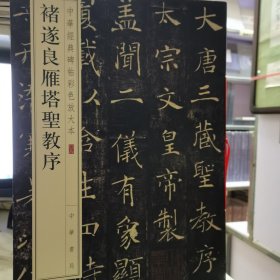 大唐三藏聖教序
太宗文皇帝製
蓋聞二儀有象顯
載以含生四
中華經典碑帖彩色放大本
褚遂良雁塔聖教序
中華書局